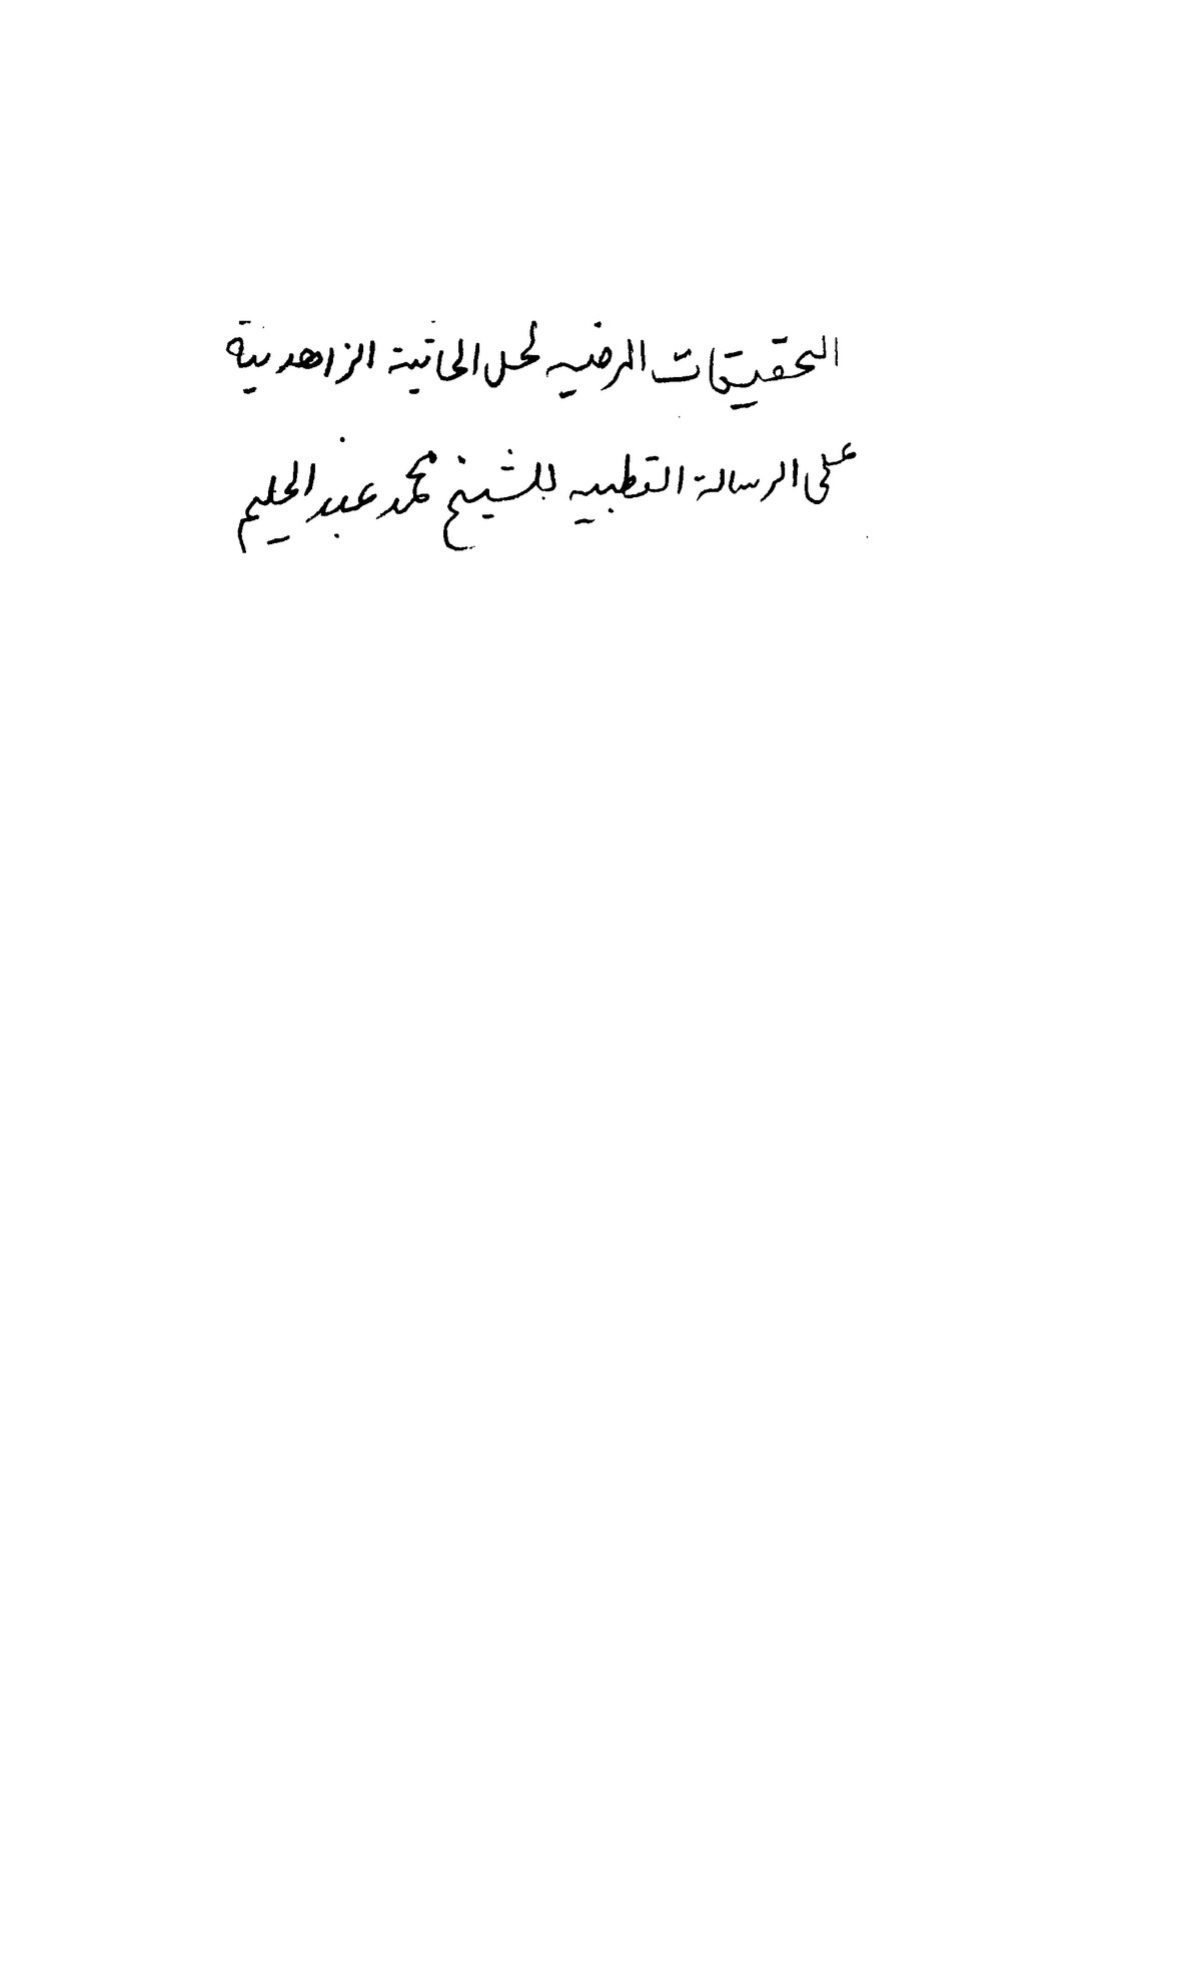 التحقيقات المرضيه لحل الحاتية الزاهدية
على الرسالة القطبيه للشيخ محمد عبد الحليم